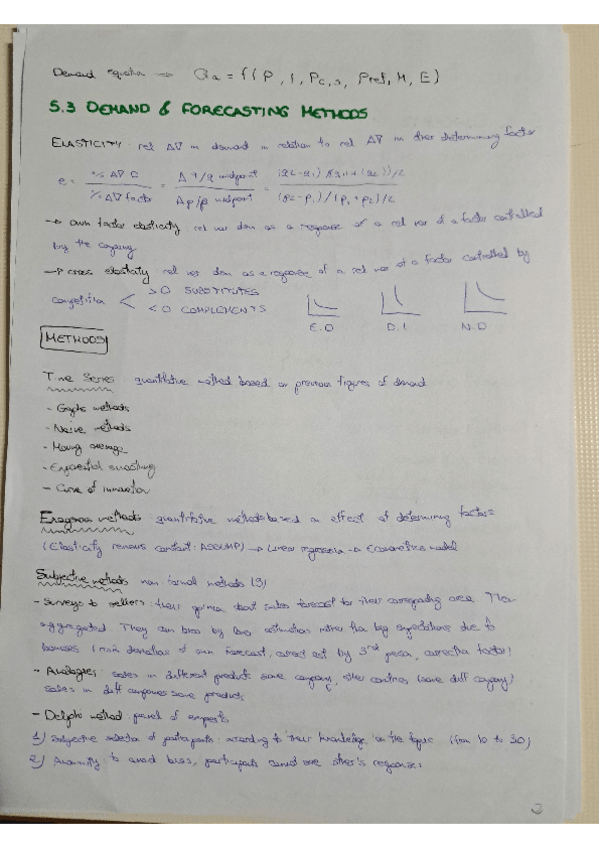 Demand equation → Qd = f(P, I, Pc,s, Pref, M, E)
5.3 DEMAND & FORECASTING METHODS
ELASTICITY: rel Δ∇ in demand in relation to rel Δ∇ in their determining factor
e = %Δ∇ D / %Δ∇ factor = Δq/q midpoint / Δp/p midpoint = (q2-q1)/(q1+q2)/2 / (p2-p1)/(p1+p2)/2
→ own factor elasticity: rel var dem as a response of a rel var of a factor controlled
by the company
→ cross elasticity rel var dem as a response of a rel var of a factor controlled by
competitor < >0 SUBSTITUTES
<0 COMPLEMENTS
E.D D.I N.D
METHODS
Time Series: quantitative method based on previous figures of demand
- Graphs methods
- Naive methods
- Moving average
- Exponential smoothing
- Curve of innovation
methods: quantitative methods based on effect of determining factors
(Elasticity remains constant: ASSUMP) → Linear regression → Econometrics model
Subjective methods: non formal methods (3)
- Surveys to sellers: their opinion about sales forecast for their corresponding area. Then
aggregated. They can bias by low estimations rather than big expectations due to
bonuses (main of own forecast, correct est by 3rd person, correction factor)
- Analogies: sales in different products same company, other countries (same diff company)
sales in diff companies same products
- Delphi method: panel of experts
1) Subjective selection of participants: according to their knowledge on the topic (from 10 to 30)
2) Anonimity: to avoid bias, participants cannot see other's responses